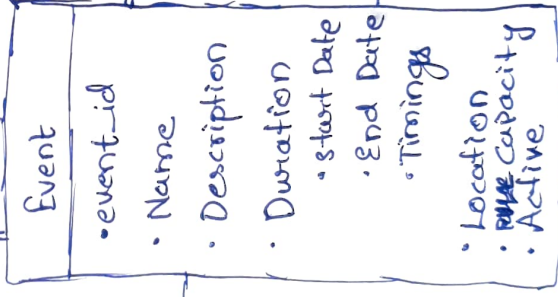 Event
• event_id
• Name
• Description
• Duration
• Start Date
• End Date
• Timings
• Location
• Capacity
• Active